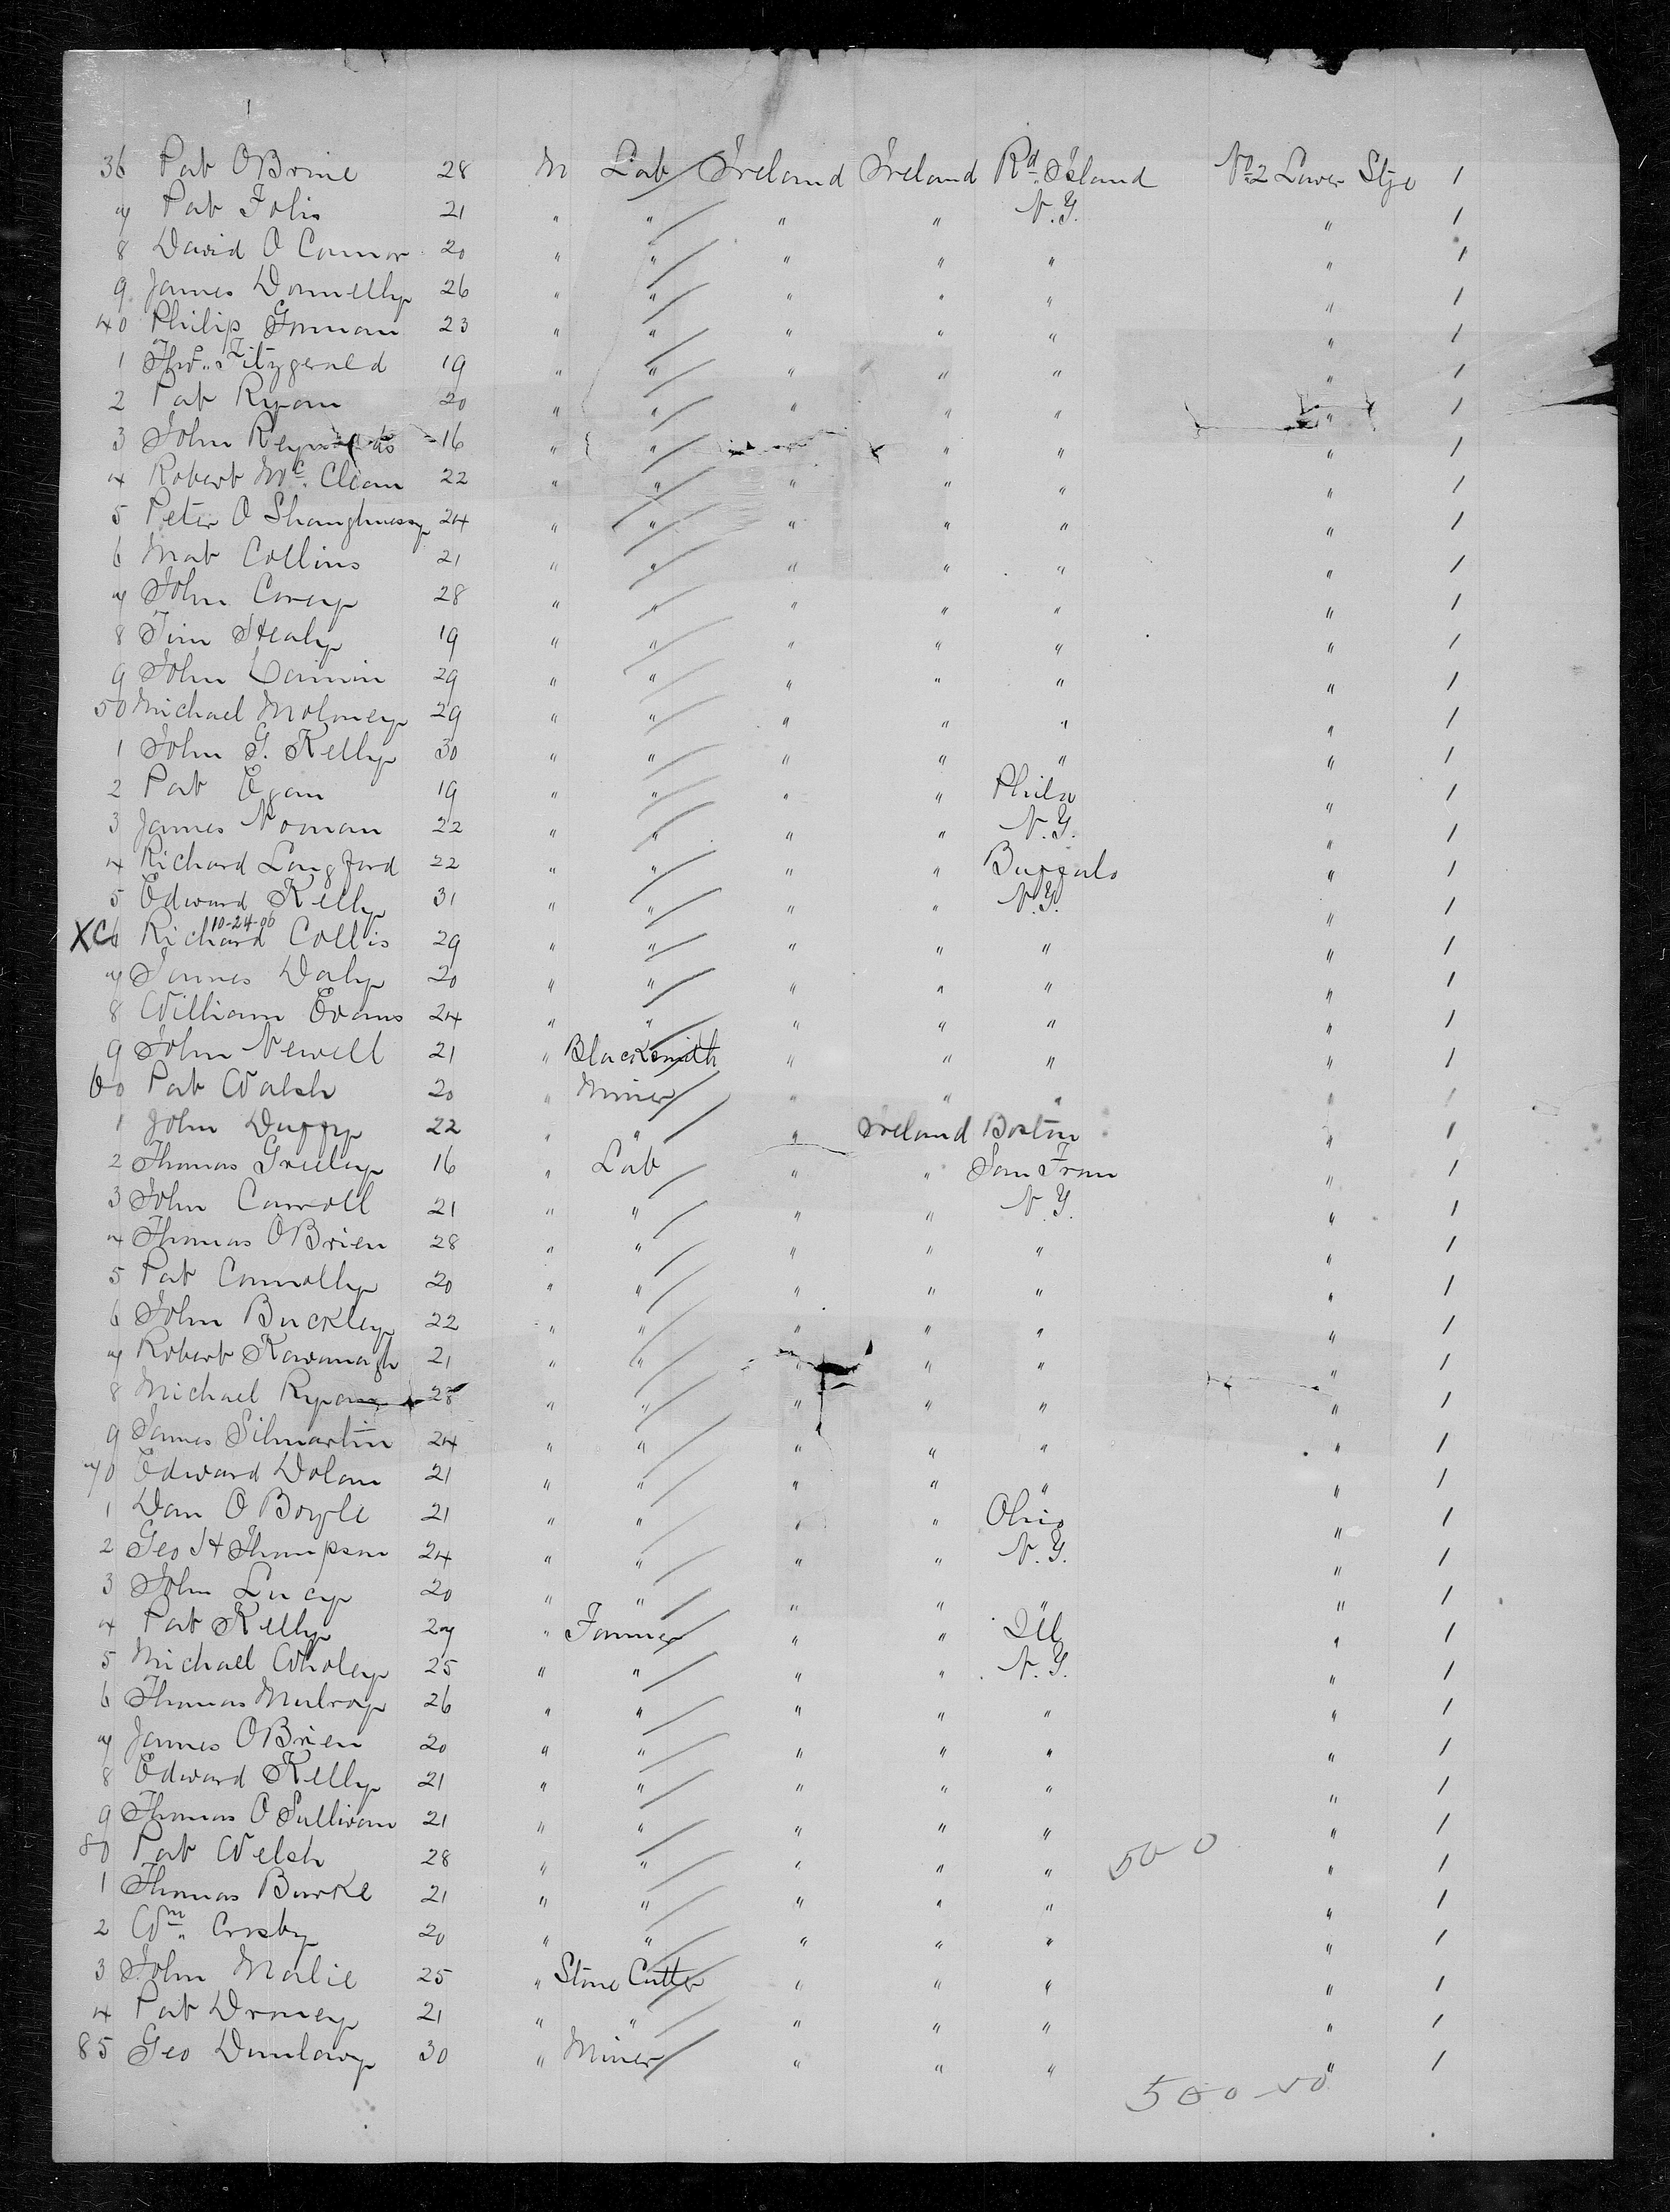 36 Pat OBrine 28 m Lab Ireland Ireland Rd. Island No 2 Lower Stge 1
7 Pat Folis 21 " " " " N.Y. " 1
8 David O Connor 20 " " " " " " 1
9 James Donnelly 26 " " " " " " 1
40 Philip Gorman 23 " " " " " " 1
1 Tho.s Fitzgerald 19 " " " " " " 1
2 Pat Ryan 20 " " " " " " 1
3 John Reynolds 16 " " " " " " 1
4 Robert Mc. Clean 22 " " " " " " 1
5 Peter O Shaughnessy 24 " " " " " " 1
6 Mat Collins 21 " " " " " " 1
7 John Carey 28 " " " " " " 1
8 Tim Healy 19 " " " " " " 1
9 John 29 " " " " " " 1
50 Michael Moloney 29 " " " " " " 1
1 John G. Kelly 30 " " " " " " 1
2 Pat Egan 19 " " " " Phila " 1
3 James Noonan 22 " " " " N.Y. " 1
4 Richard Longford 22 " " " " Buffalo " 1
5 Edward Kelly 31 " " " " N.Y. " 1
10-24-06
XC6 Richard Collis 29 " " " " " " 1
7 James Daly 20 " " " " " " 1
8 William Evans 24 " " " " " " 1
9 John Newell 21 " Blacksmith " " " " 1
60 Pat Walsh 20 " Miner " " " " 1
1 John Duffy 22 " " " Ireland Boston " 1
2 Thomas Greeley 16 " Lab " " San Fran " 1
3 John Carroll 21 " " " " N.Y. " 1
4 Thomas OBrien 28 " " " " " " 1
5 Pat Connolly 20 " " " " " " 1
6 John Buckley 22 " " " " " " 1
7 Robert Kavanagh 21 " " " " " " 1
8 Michael Ryan 28 " " " " " " 1
9 James Gilmartin 24 " " " " " " 1
70 Edward Dolan 21 " " " " " " 1
1 Dan O Boyle 21 " " " " Ohio " 1
2 Geo H Thompson 24 " " " " N.Y. " 1
3 John Lucy 20 " " " " " " 1
4 Pat Kelly 27 " Farmer " " Ill " 1
5 Michael Wholey 25 " " " " N.Y. " 1
6 Thomas Mulroy 26 " " " " " " 1
7 James OBrien 20 " " " " " " 1
8 Edward Kelly 21 " " " " " " 1
9 Thomas O Sullivan 21 " " " " " " 1
80 Pat Welsh 28 " " " " " 500 " 1
1 Thomas Burke 21 " " " " " " 1
2 Wm. Crosby 20 " " " " " " 1
3 John Malie 25 " Stone Cutter " " " " 1
4 Pat Droney 21 " " " " " " 1
85 Geo Dunlavy 30 " Miner " " " " 1